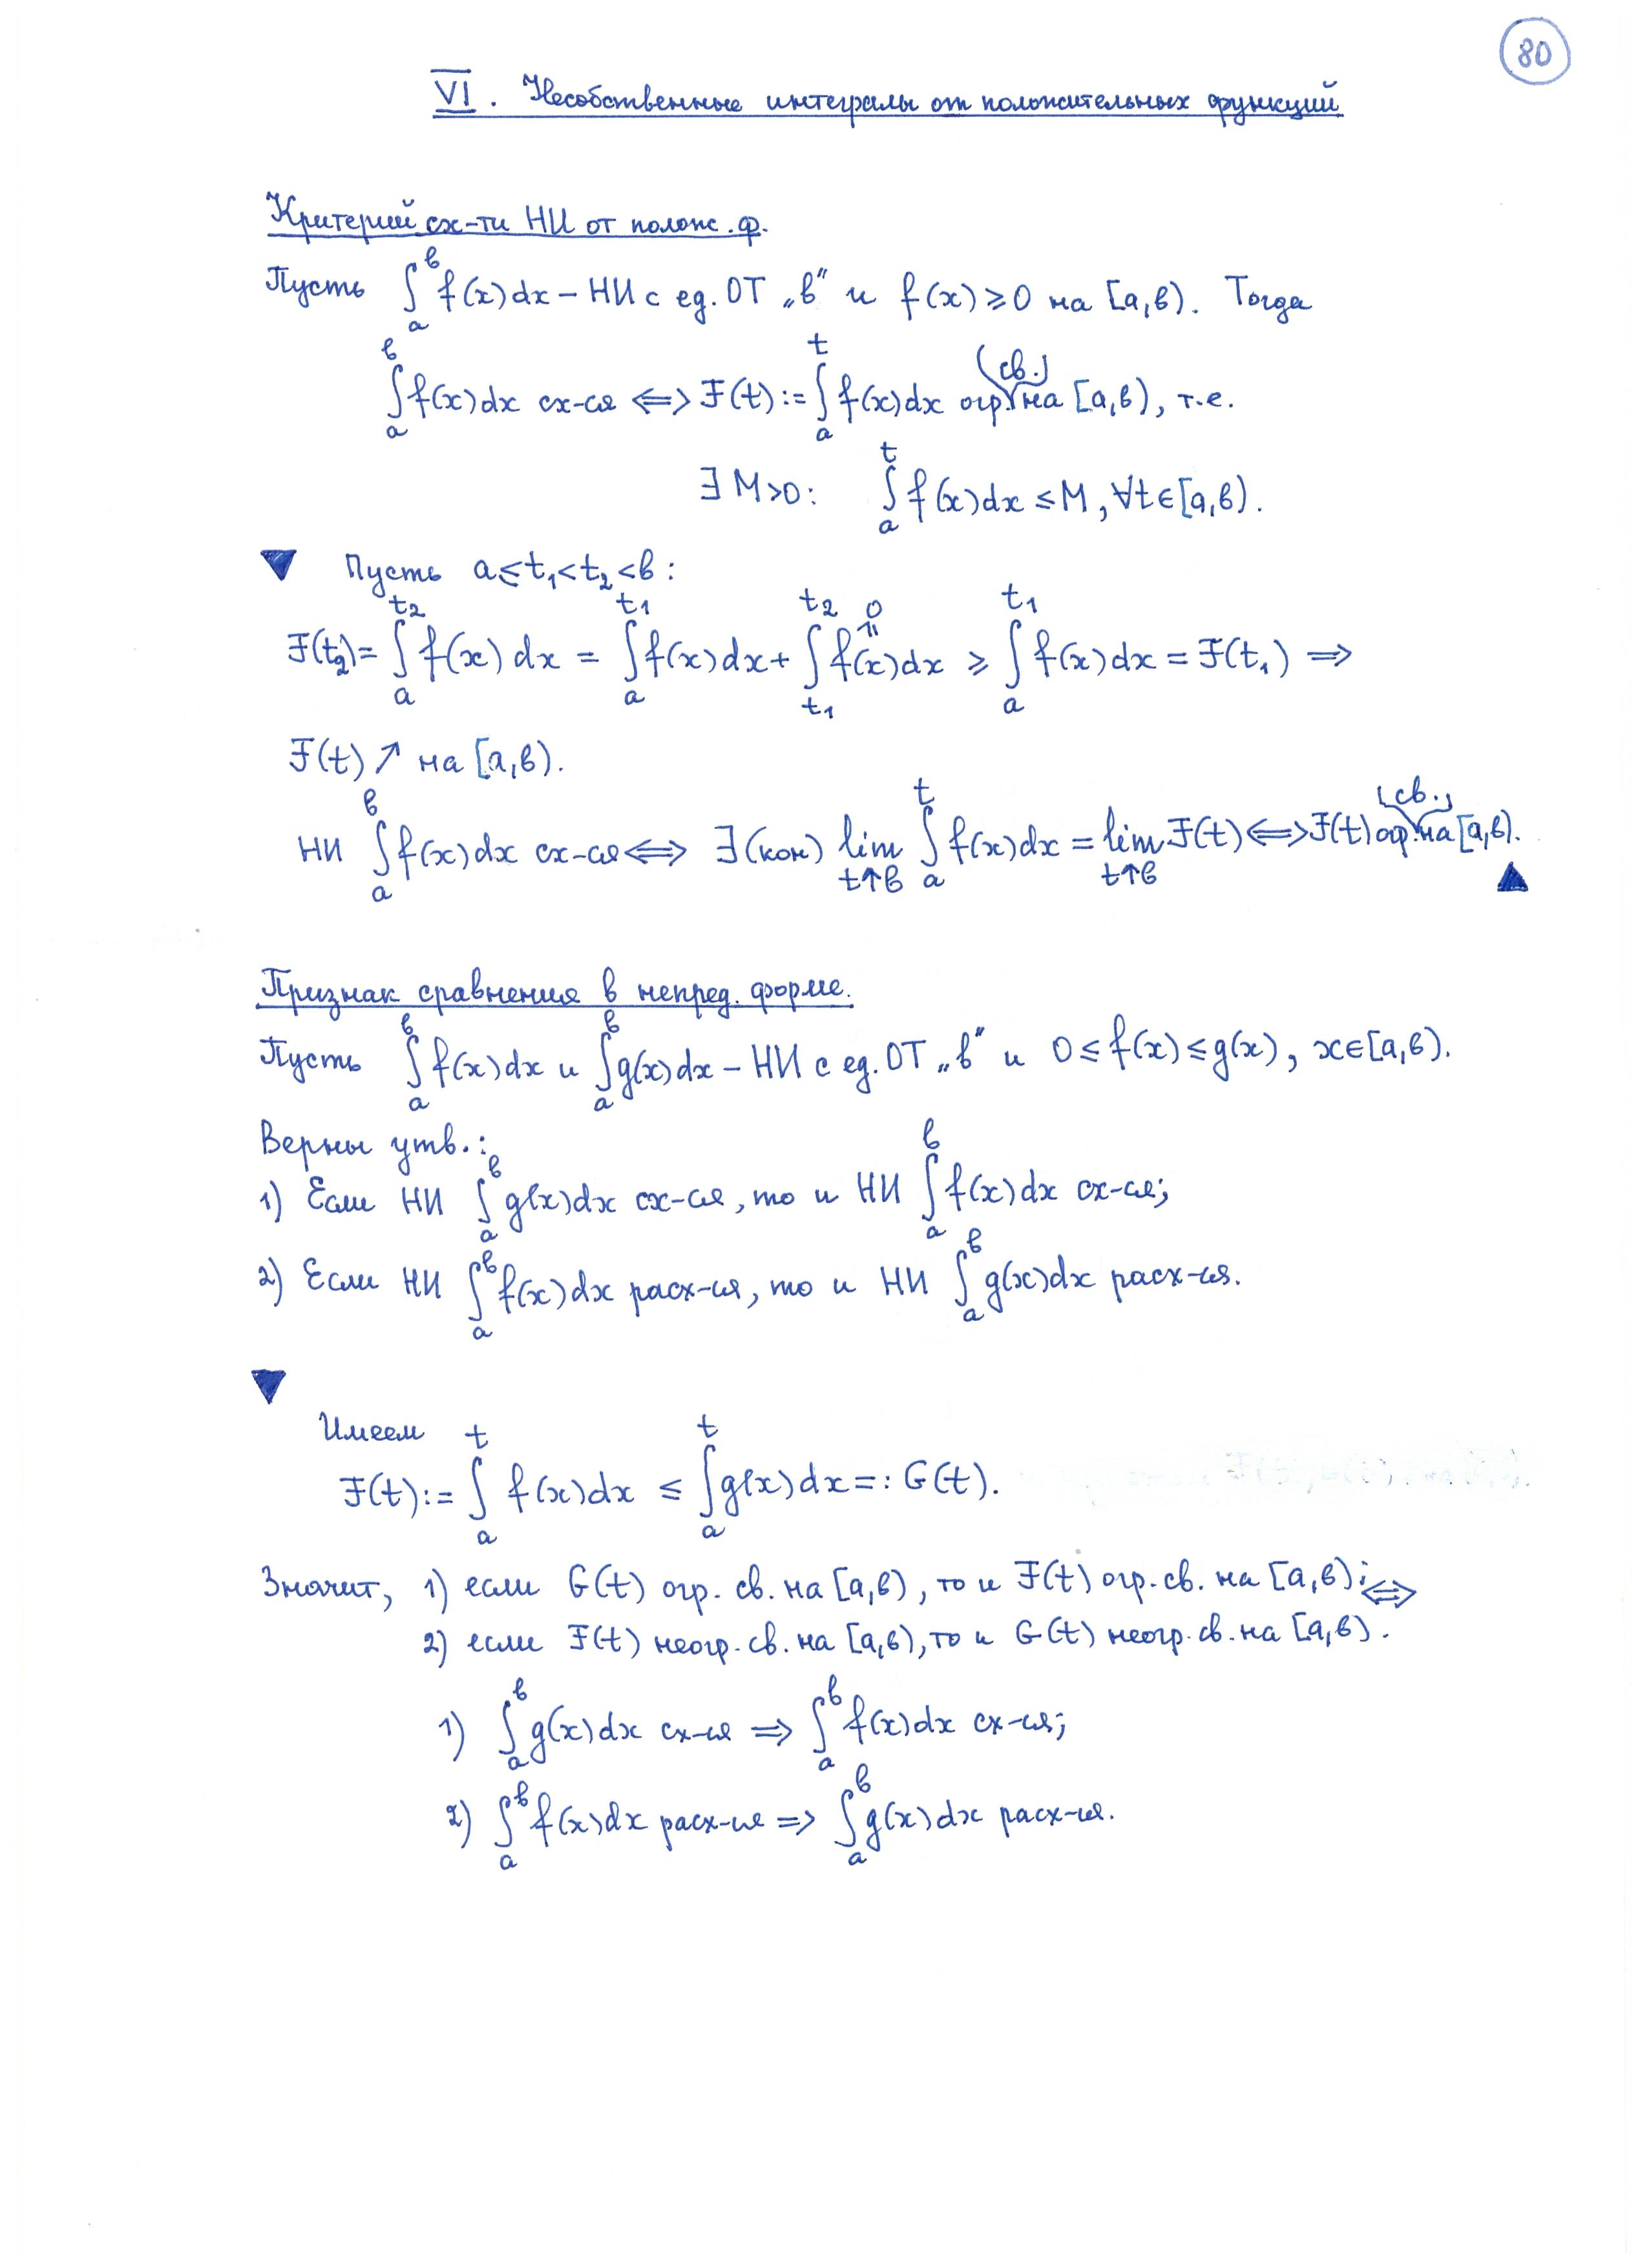 80
VI. Несобственные интегралы от положительных функций
Критерий сх-ти НИ от полож. ф.
Пусть ∫ₐᵇ f(x)dx – НИ с ед. ОТ „b" и f(x) ≥ 0 на [a,b). Тогда
∫ₐᵇ f(x)dx сх-ся ⟺ F(t) := ∫ₐᵗ f(x)dx огр. (св.) на [a,b), т.е.
∃ M>0: ∫ₐᵗ f(x)dx ≤ M, ∀t∈[a,b).
▼ Пусть a ≤ t₁ < t₂ < b :
F(t₂) = ∫_a^{t₂} f(x) dx = ∫_a^{t₁} f(x)dx + ∫_{t₁}^{t₂} f(x)dx ≥ ∫_a^{t₁} f(x)dx = F(t₁) ⇒
0 ≤
F(t) ↗ на [a,b).
НИ ∫ₐᵇ f(x)dx сх-ся ⟺ ∃(кон) lim_{t↑b} ∫ₐᵗ f(x)dx = lim_{t↑b} F(t) ⟺ F(t) огр. (св.) на [a,b). ▲
Признак сравнения в непред. форме.
Пусть ∫ₐᵇ f(x)dx и ∫ₐᵇ g(x)dx – НИ с ед. ОТ „b" и 0 ≤ f(x) ≤ g(x), x∈[a,b).
Верны утв.:
1) Если НИ ∫ₐᵇ g(x)dx сх-ся, то и НИ ∫ₐᵇ f(x)dx сх-ся;
2) Если НИ ∫ₐᵇ f(x)dx расх-ся, то и НИ ∫ₐᵇ g(x)dx расх-ся.
▼
Имеем
F(t) := ∫ₐᵗ f(x)dx ≤ ∫ₐᵗ g(x)dx =: G(t).
Значит, 1) если G(t) огр. св. на [a,b), то и F(t) огр. св. на [a,b); ⟺
2) если F(t) неогр. св. на [a,b), то и G(t) неогр. св. на [a,b).
1) ∫ₐᵇ g(x)dx сх-ся ⇒ ∫ₐᵇ f(x)dx сх-ся;
2) ∫ₐᵇ f(x)dx расх-ся ⇒ ∫ₐᵇ g(x)dx расх-ся.